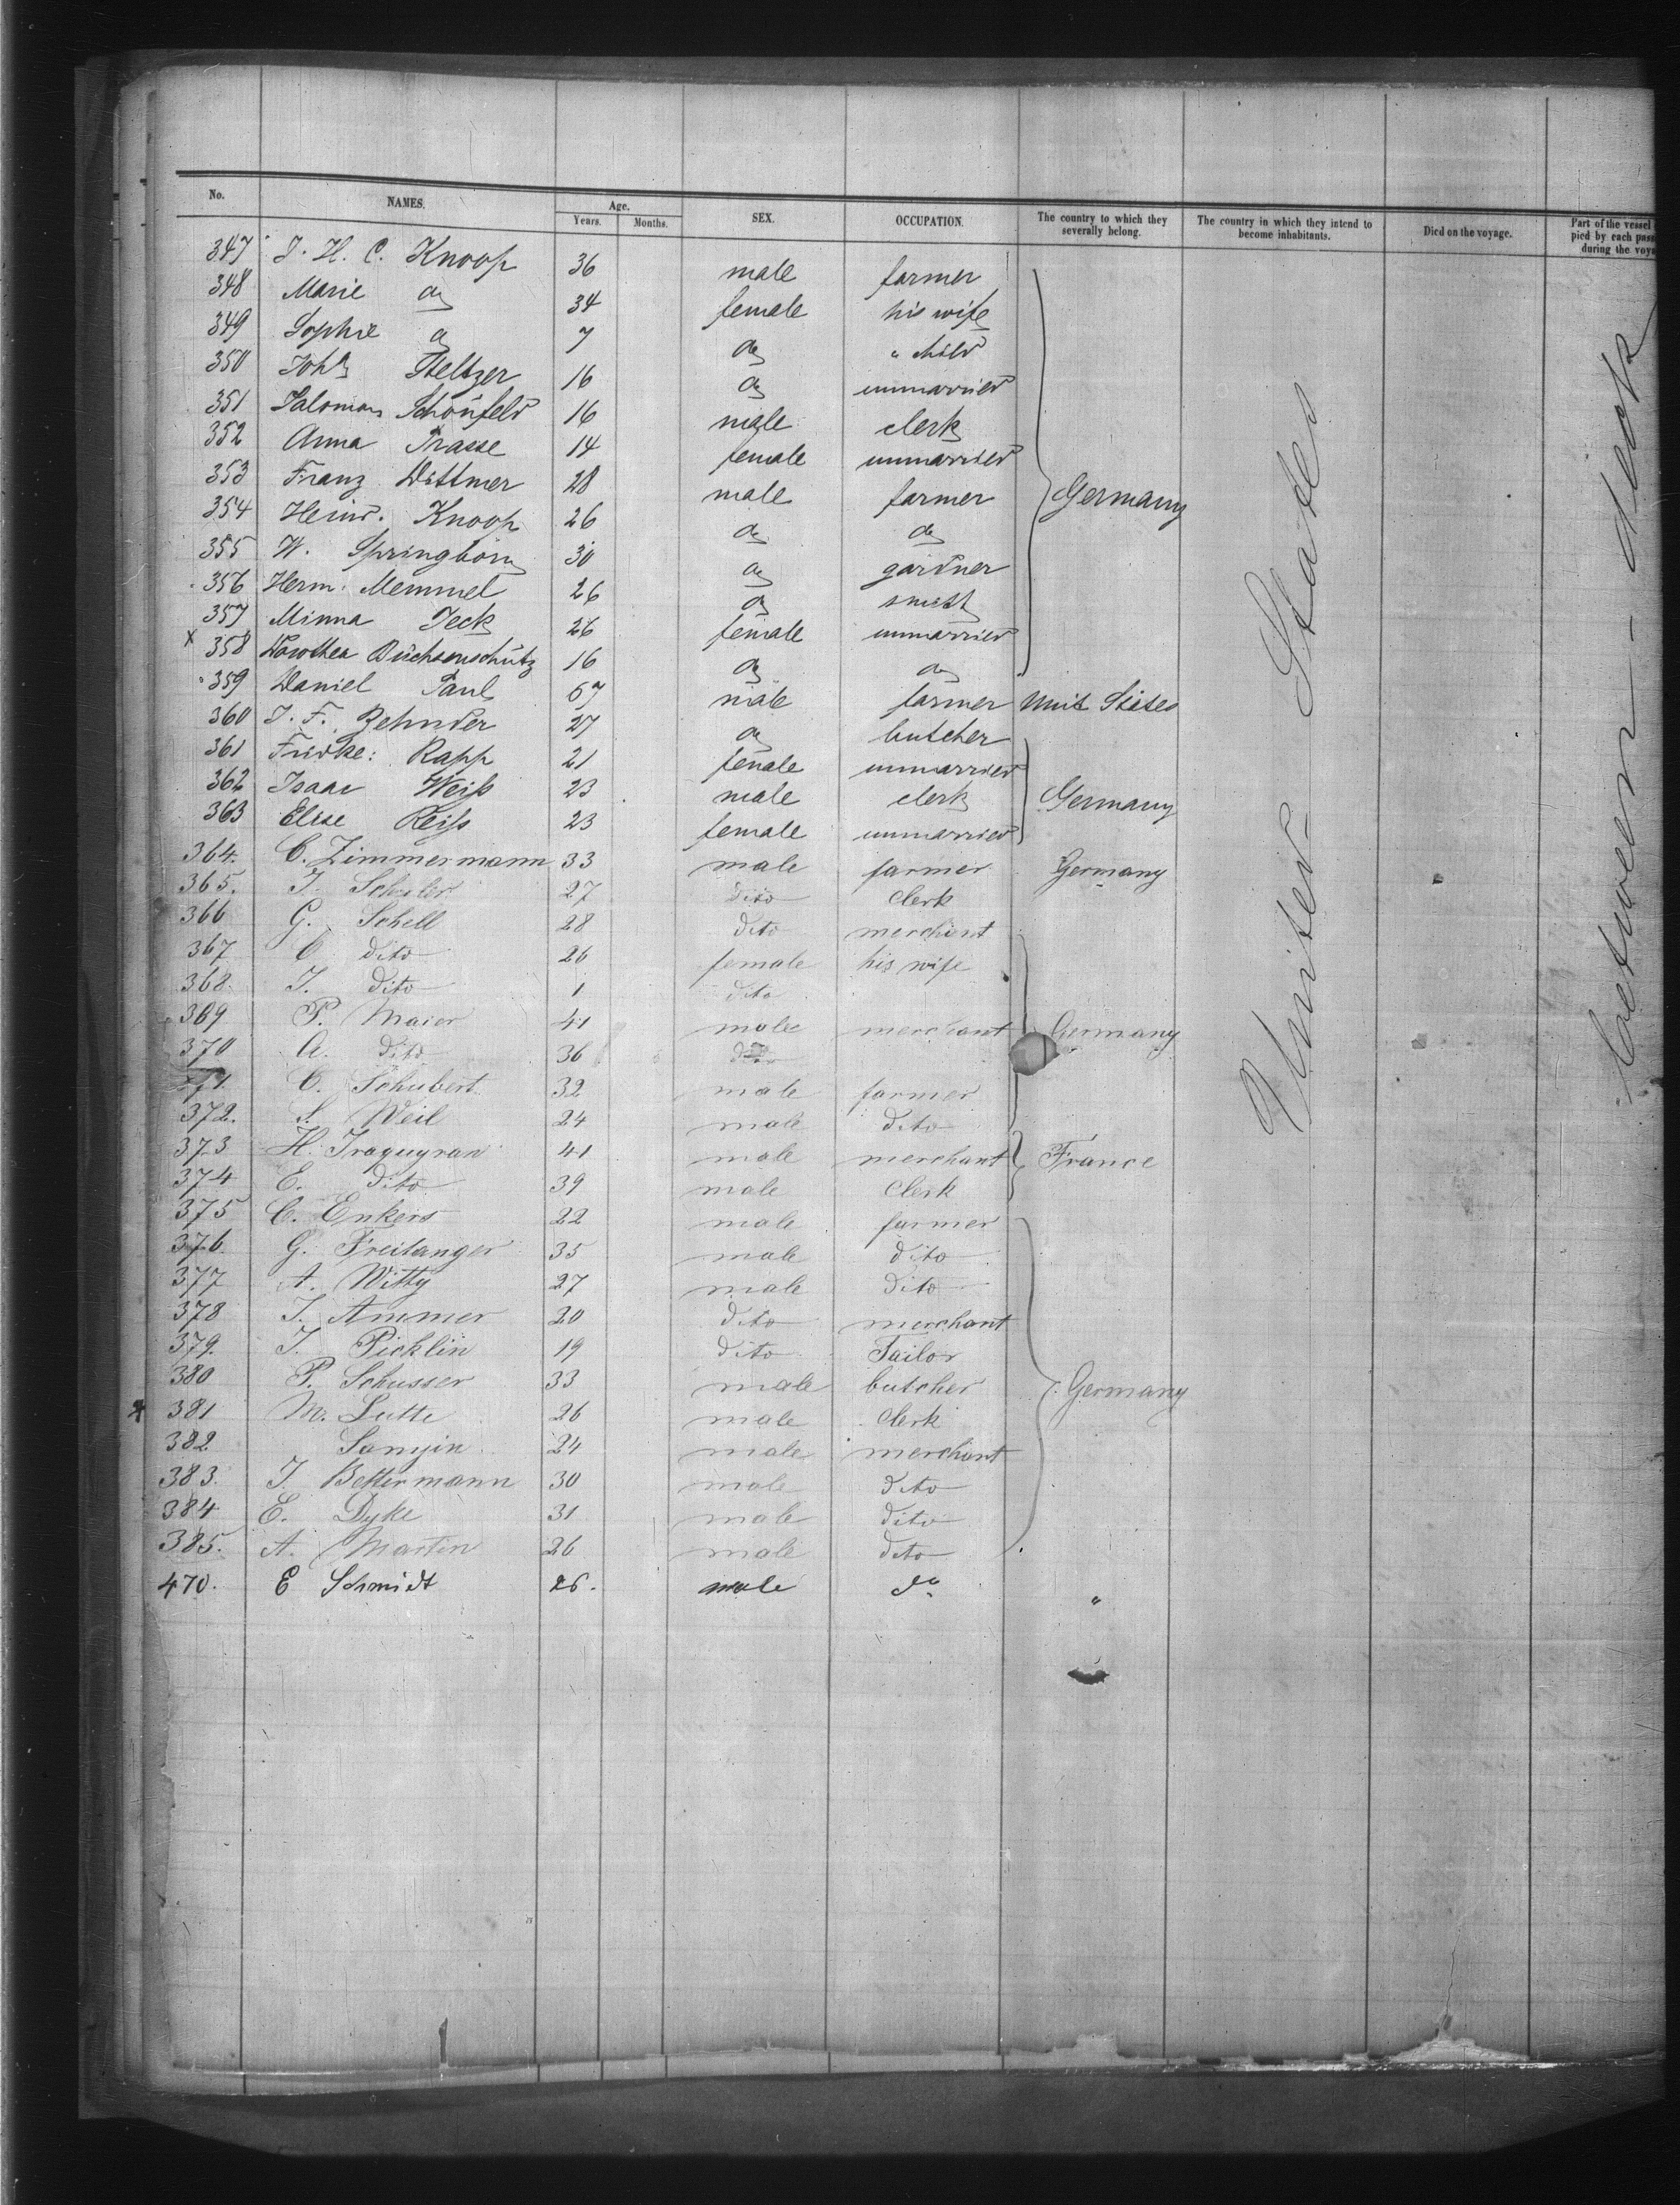 No. NAMES. Age. Years. Months. SEX. OCCUPATION. The country to which they severally belong. The country in which they intend to become inhabitants. Died on the voyage. Part of the vessel pied by each pass during the voya
347 J. H. C. Knoop 36 male farmer
348 Marie do 34 female his wife
349 Sophie do 7 do " child
350 Steltzer 16 do unmarried
351 Salomon Schönfeld 16 male clerk
352 Anna Prasse 14 female unmarried
353 Franz Dittmer 28 male farmer Germany
354 Heinr. Knoop 26 do do
355 W. Springborn 30 do gardner
356 Herm. Memmel 26 do smith
357 Minna Jeck 26 female unmarried
x 358 Dorothea Büchsenschütz 16 do do
359 Daniel Paul 67 male farmer Unit States
360 J. F. Zehnder 27 do butcher
361 Friedke: Rapp 21 female unmarried
362 Isaac Weiß 23 male clerk Germany
363 Elise Reiß 23 female unmarried
364. C. Zimmermann 33 male farmer Germany
365. J. Schuler 27 dito clerk
366 G. Schell 28 dito merchant
367 C dito 26 female his wife
368. J. dito 1 dito
369 P. Maier 41 male merchant Germany
370 A. dito 36 dito
371. C. Schubert 32 male farmer
372. S. Weil 24 male dito
373 H. 41 male merchant France
374 E. dito 39 male clerk
375 C. Enkers 22 male farmer
376. G. Freitanger 35 male dito
377 A. Witty 27 male dito
378 J. Ammer 20 dito merchant
379. J. Picklin 19 dito Tailor
380 P. Schusser 33 male butcher Germany
x 381 M. Lutte 26 male clerk
382 24 male merchant
383. J. Bettermann 30 male dito
384 E. Dyke 31 male dito
385. A. Martin 26 male dito
470. E Schmidt 26. male do "
United States
between-deck